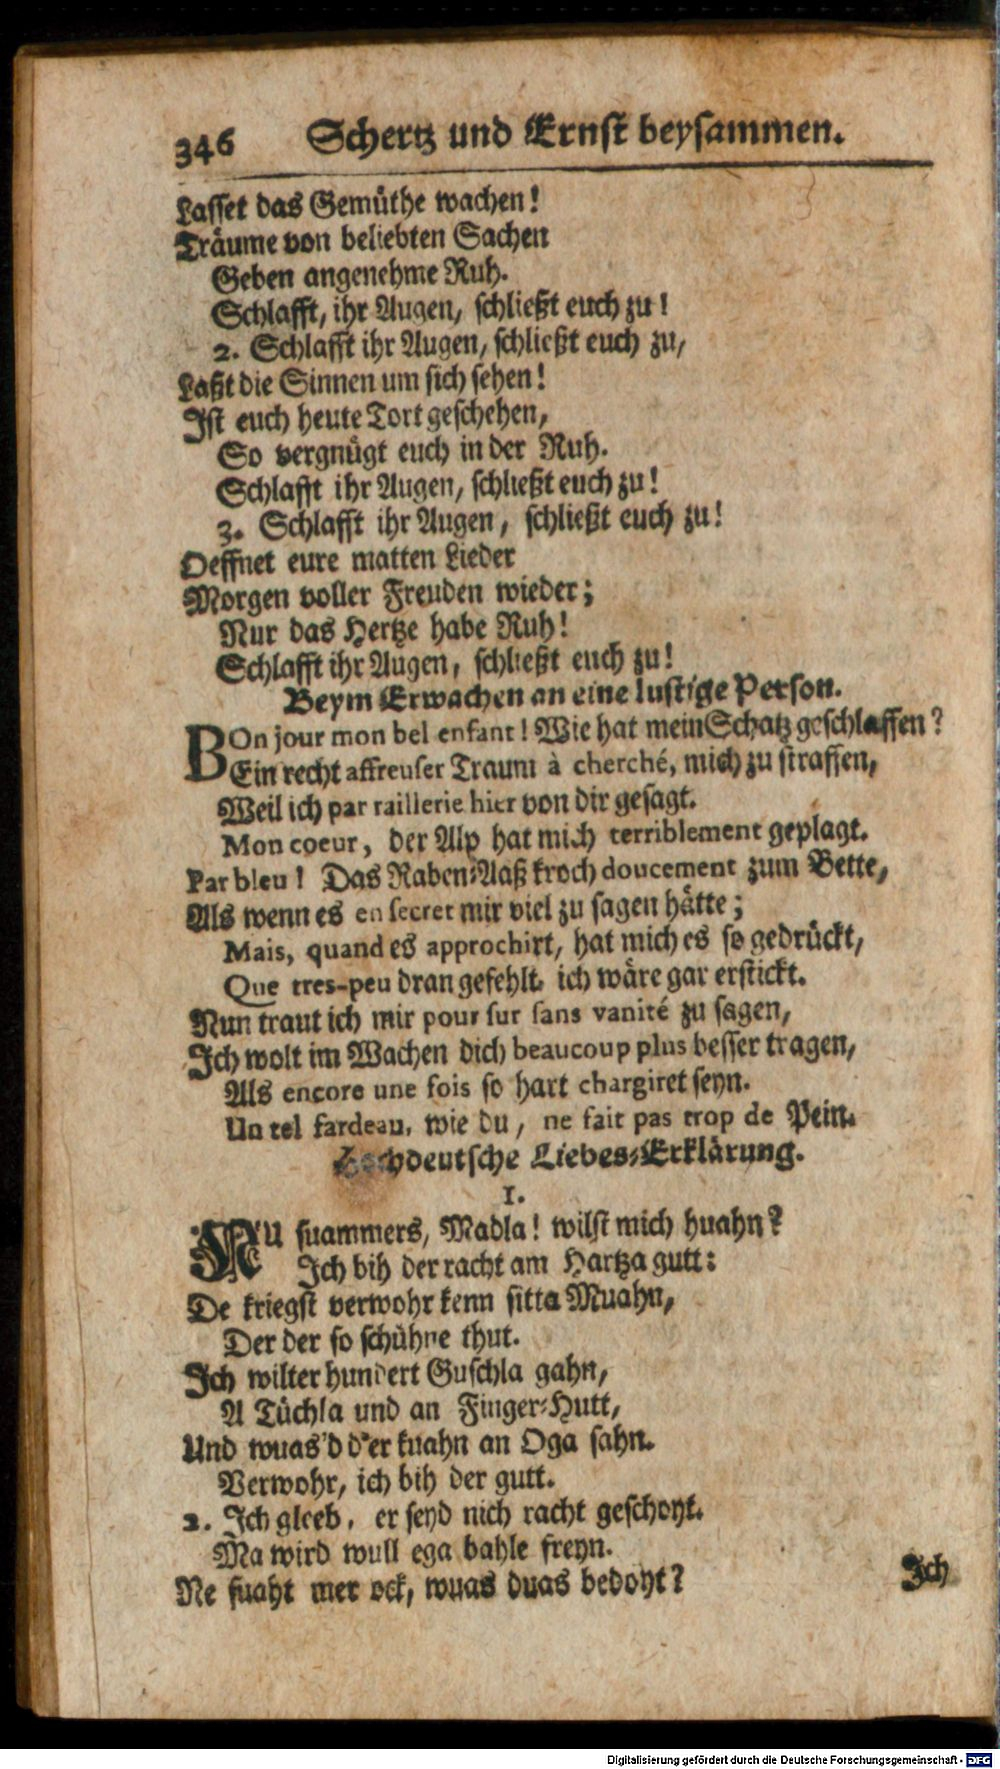 346 Schertz und Ernst beysammen.
Lasset das Gemüthe wachen!
Träume von beliebten Sachen
Geben angenehme Ruh.
Schlafft, ihr Augen, schließt euch zu!
2. Schlafft ihr Augen, schließt euch zu,
Laßt die Sinnen um sich sehen!
Ist euch heute Tort geschehen,
So vergnügt euch in der Ruh.
Schlafft ihr Augen, schließt euch zu!
3. Schlafft ihr Augen, schließt euch zu!
Oeffnet eure matten Lieder
Morgen voller Freuden wieder;
Nur das Hertze habe Ruh!
Schlafft ihr Augen, schließt euch zu!
Beym Erwachen an eine lustige Person.
BOn jour mon bel enfant! Wie hat mein Schatz geschlaffen?
Ein recht affreuser Traum à cherché, mich zu straffen,
Weil ich par raillerie hier von dir gesagt.
Mon coeur, der Alp hat mich terriblement geplagt.
Par bleu! Das Raben-Aaß kroch doucement zum Bette,
Als wenn es en secret mir viel zu sagen hätte;
Mais, quand es approchirt, hat mich es so gedrückt,
Que tres-peu dran gefehlt, ich wäre gar erstickt.
Nun traut ich mir pour sur sans vanité zu sagen,
Ich wolt im Wachen dich beaucoup plus besser tragen,
Als encore une fois so hart chargiret seyn.
Un tel fardeau, wie du, ne fait pas trop de Pein.
Hochdeutsche Liebes-Erklärung.
1.
NU suammers, Madla! wilst mich huahn?
Ich bih der racht am Hartza gutt:
De kriegst verwohr kenn sitta Muahn,
Der der so schühne thut.
Ich wilter hundert Guschla gahn,
A Tüchla und an Finger-Hutt,
Und wuas'd d'er kuahn an Oga sahn.
Verwohr, ich bih der gutt.
2. Ich gleeb, er seyd nich racht geschoyt.
Ma wird wull ega bahle freyn.
Ne suaht mer ock, wuas duas bedoyt?
Ich
Digitalisierung gefördert durch die Deutsche Forschungsgemeinschaft - DFG